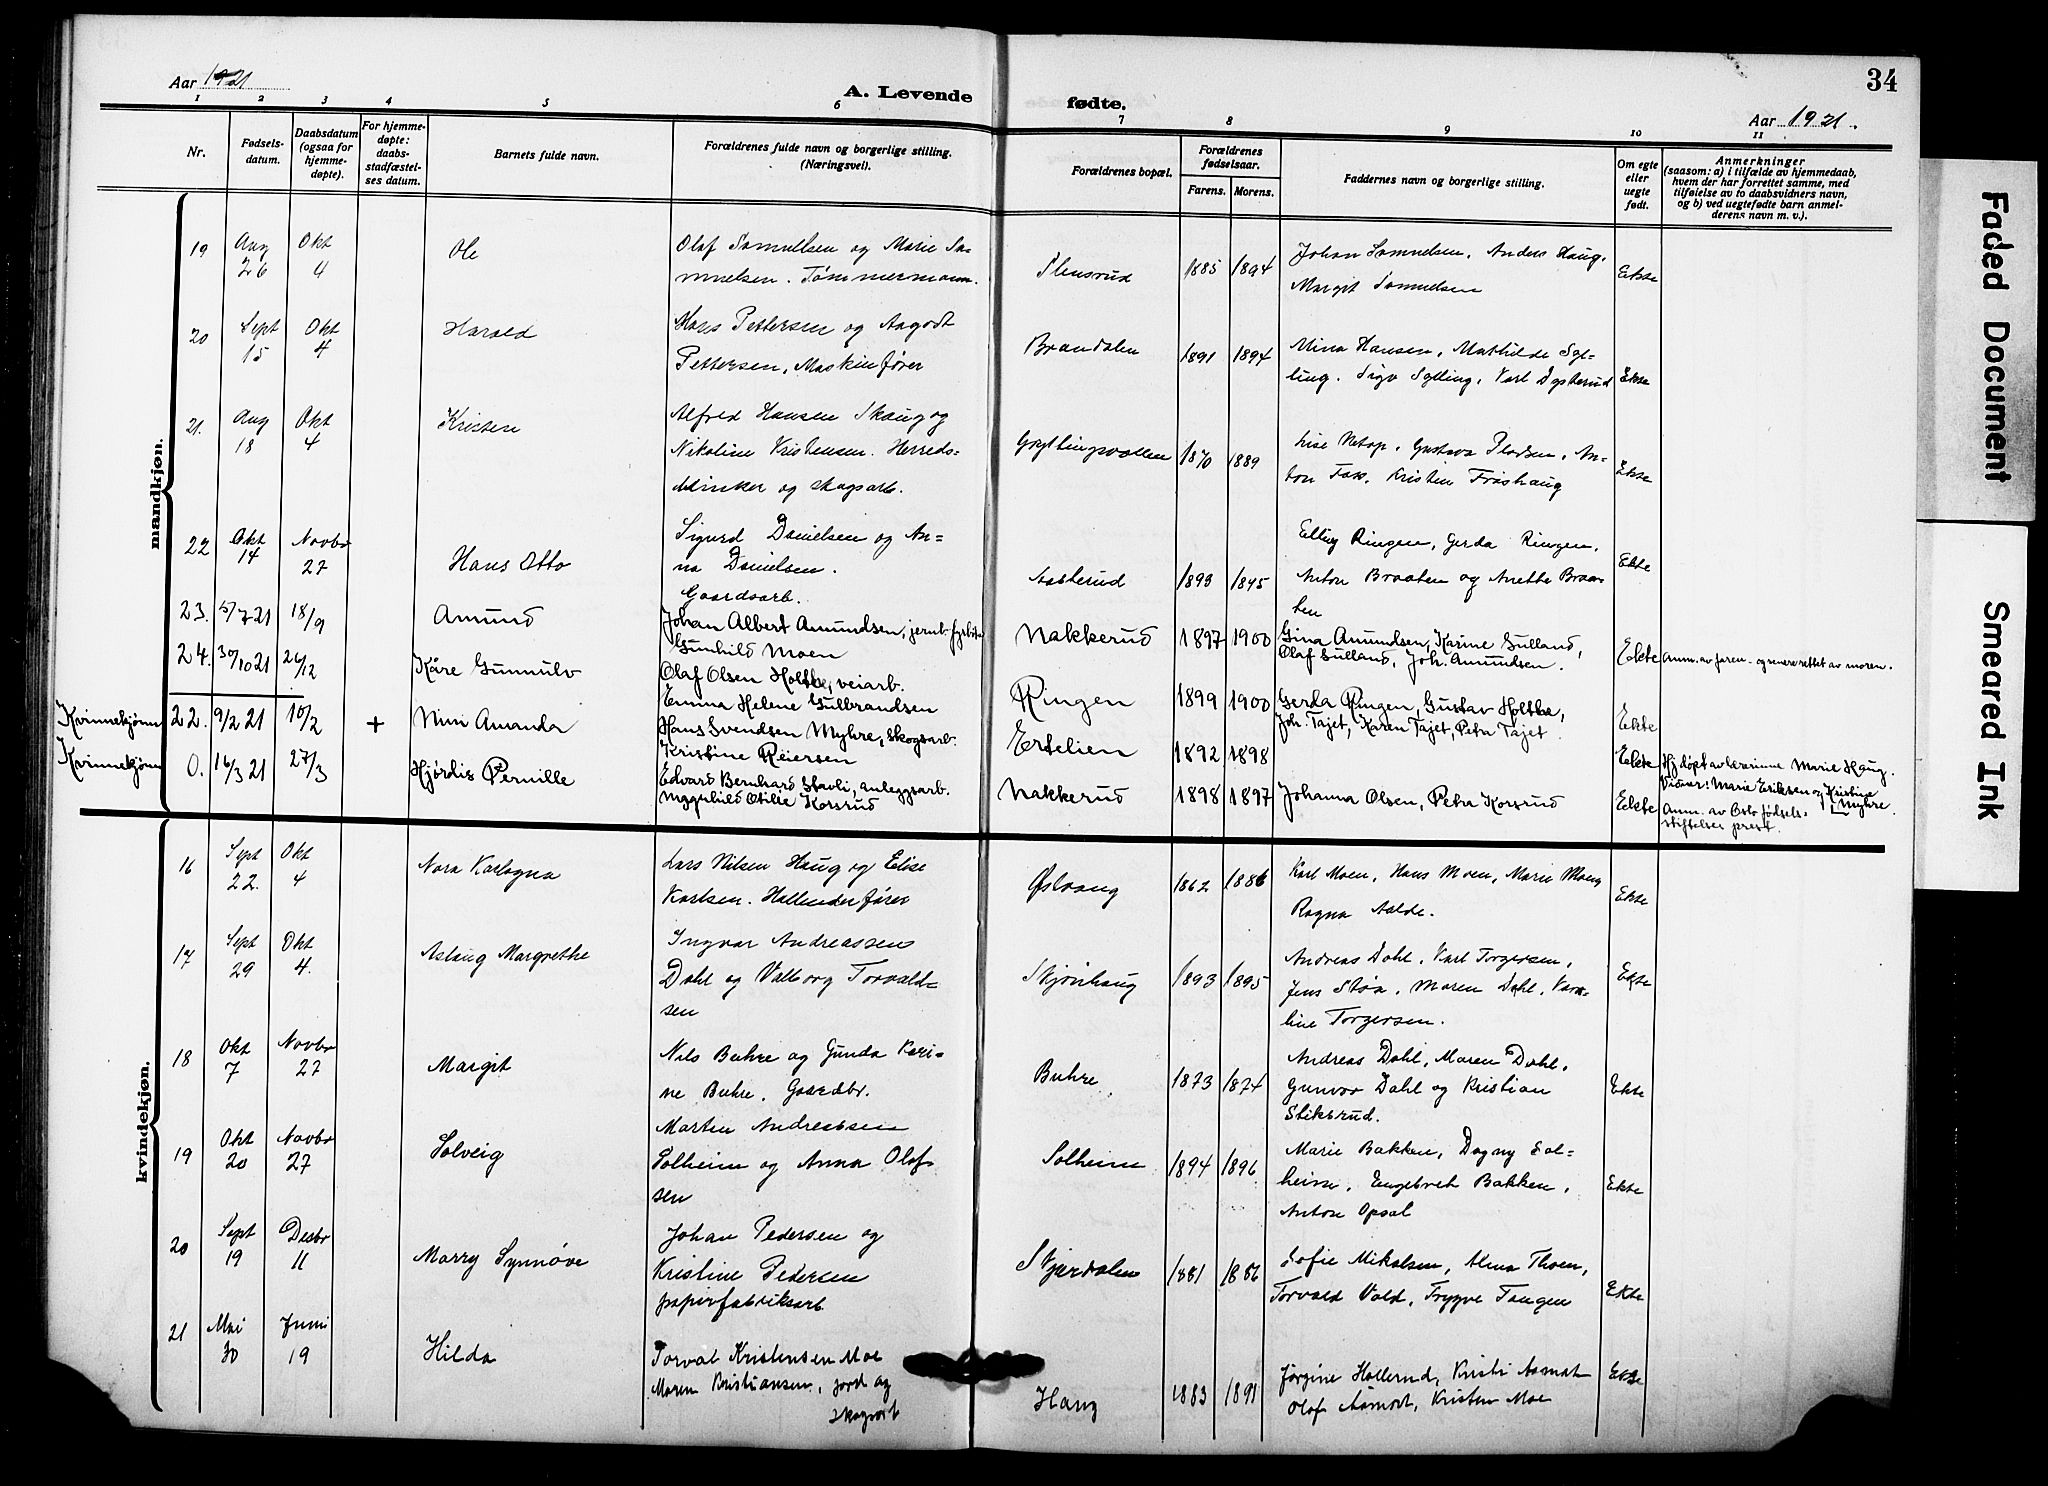 Aar 1921
A. Levende fødte.
34
Aar 1921.
1 2 3 4 5 6 7 8 9 10 11
Nr.
Fødsels-
datum.
Daabsdatum
(ogsaa for
hjemme-
døpte).
For hjemme-
døpte:
daabs-
stadfæstel-
ses datum.
Barnets fulde navn.
Forældrenes fulde navn og borgerlige stilling.
(Næringsvei).
Forældrenes bopæl.
Forældrenes
fødselsaar.
Farens. Morens.
Faddernes navn og borgerlige stilling.
Om egte
eller
uegte
født.
Anmerkninger
(saasom: a) i tilfælde av hjemmedaab,
hvem der har forrettet samme, med
tilføielse av to daabsvidners navn,
og b) ved uegtefødte barn anmel-
derens navn m. v.).
mandkjøn.
19 Aug 26 Okt 4 Ole
Olaf Samuelsen og Marie Sa-
muelsen. Tømmermann.
1885 1894
Johan Samuelsen, Anders Haug.
Margit Samuelsen
Ekte
20 Sept 15 Okt 4 Harald
Hans Pettersen og Aagodt
Pettersen, Maskinfører
Brandalen 1891 1894
Mina Hansen, Mathilde Syl-
ling. Sigv Sylling, Karl Dysterud
Ekte
21. Aug 18 Okt 4 Kristen
Alfred Hansen Skaug og
Nikoline Kristensen. Herreds-
og skogsarb.
1870 1889
Lise Netop, Gustava Pladsen, An-
ton Fok. Kristin Frøshaug
Ekte
22 Okt 14 Novbr 27 Hans Otto
Sigurd Danielsen og An-
na Danielsen.
Gaardsarb.
Aasterud 1893 1895
Elling Ringen, Gerda Ringen.
Anton Braaten og Anette Braa-
ten
Ekte
23. 5/7 21 18/9 Amund
Johan Albert Amundsen, jernb. fyrbøter
Gunhild Moen
Nakkerud 1897 1900
Gina Amundsen, Karine Sulland,
Olaf Sulland, Joh. Amundsen.
Ekte Anm. av faren - og senere rettet av moren.
24. 30/10 21 26/12 Kåre Gunnulv
Olaf Olsen Holtbe, veiarb.
Emma Helene Gulbrandsen
Ringen 1899 1900
Gerda Ringen, Gustav Holtbe,
Joh. Tajet, Karen Tajet, Petra Tajet
Ekte
Kvinnekjønn 22. 9/2 21 10/2 + Nini Amanda
Hans Svendsen Myhre, skogsarb.
Kristine Reiersen
Ertelien 1892 1898
Ekte Hj.døpt av lærerinne Marie Haug.
Vidner: Marie Eriksen og Kristine
Myhre.
Kvinnekjønn 0. 16/3 21 27/3 Hjørdis Pernille
Edvard Bernhard Stavli, anleggsarb.
Otilie Korsrud
Nakkerud 1898 1897
Johanna Olsen, Petra Korsrud
Ekte Anm. av Oslo fødsels-
stiftelses prest.
kvindekjøn.
16 Sept 22. Okt 4 Nora Karlagna
Lars Nilsen Haug og Elise
Karlsen. Hollenderfører
Østvang 1862 1886
Karl Moen, Hans Moen, Marie Moen,
Ragna Aslde.
Ekte
17 Sept 29 Okt 4. Aslaug Margrethe
Ingvar Andreassen
Dahl og Valborg Torvald-
sen
Skjørhaug 1893 1895
Andreas Dahl, Karl Torgersen,
Jens Stöa, Maren Dahl, Karo-
line Torgersen.
Ekte
18 Okt 7 Novbr 27 Margit
Nils Buhre og Gunda Kari-
ne Buhre. Gaardbr.
Buhre 1873 1874
Andreas Dahl, Maren Dahl,
Gunvor Dahl og Kristian
Stiksrud.
Ekte
19 Okt 20 Novbr 27 Solveig
Martin Andreassen
Solheim og Anna Olaf-
sen
Solheim 1894 1896
Marie Bakken, Dagny Sol-
heim, Engebret Bakken,
Anton Opsal
Ekte
20 Sept 19 Desbr 11 Marry Synnøve
Johan Pedersen og
Kristine Pedersen
papirfabriksarb
Skjærdalen 1881 1886
Sofie Mikalsen, Alma Thoen,
Torvald Vold, Trygve Tangen
Ekte
21 Mai 30 Juni 19 Hilda
Torval Kristensen Moe
Maren Kristiansen, jord og
skogsarb
Haug 1883 1891
Jørgine Hollerud, Kristi Aamot
Olaf Aamodt, Kristen Moe
Ekte
Faded Document
Smeared Ink